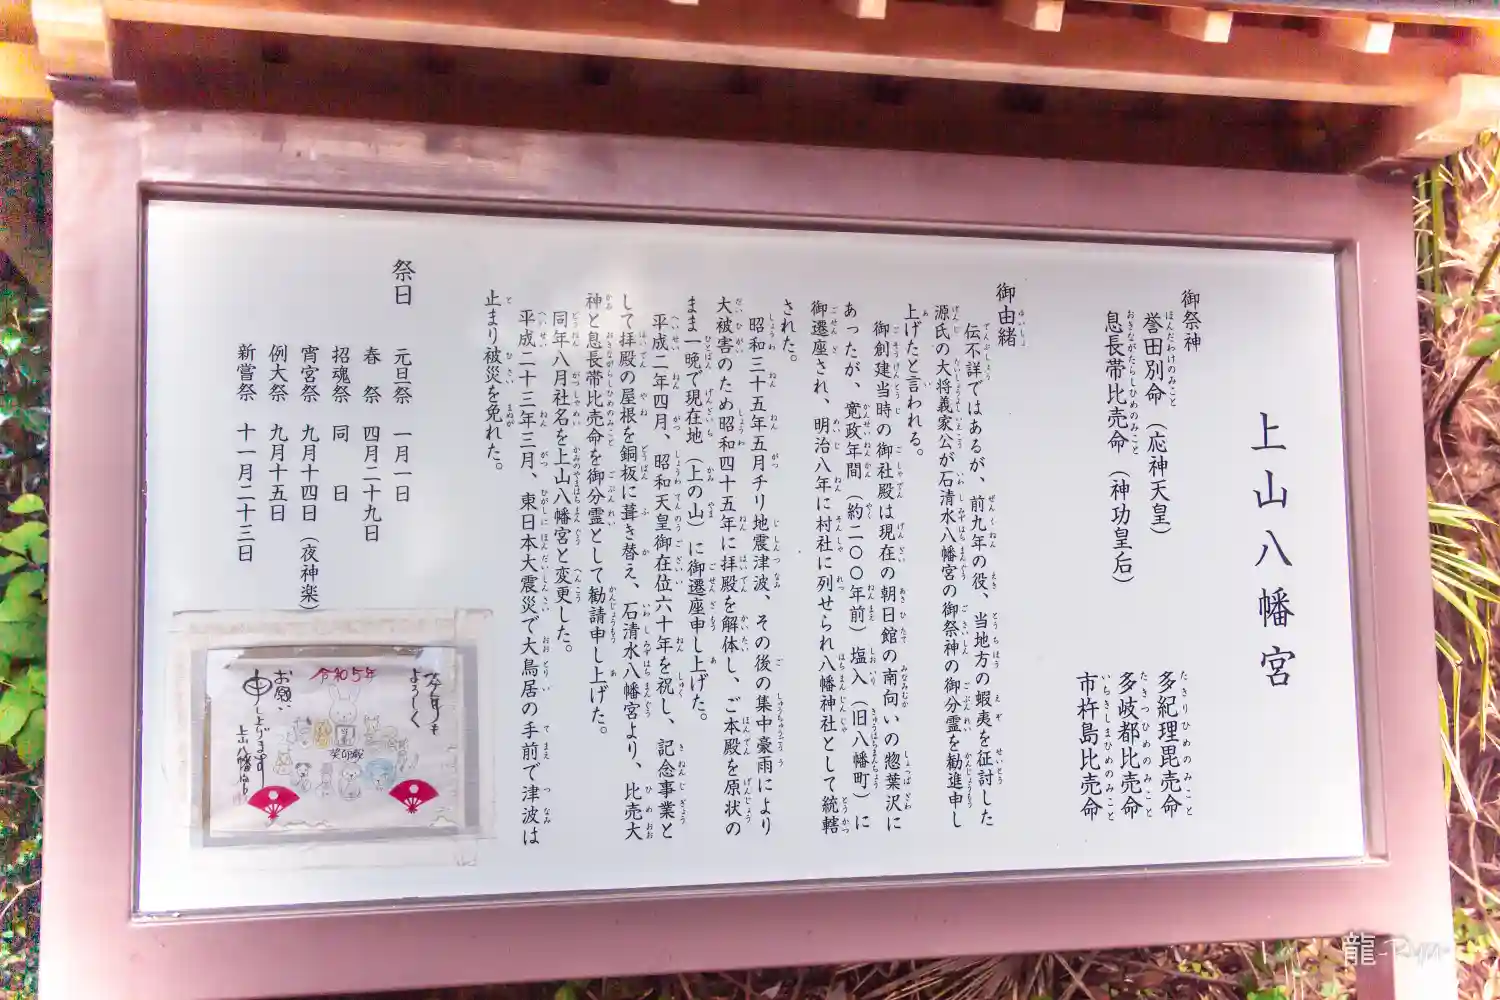 上山八幡宮
御祭神
誉田別命（応神天皇）
息長帯比売命（神功皇后）
多紀理毘売命
多岐都比売命
市杵島比売命
御由緒
伝不詳ではあるが、前九年の役、当地方の蝦夷を征討した
源氏の大将義家公が石清水八幡宮の御祭神の御分霊を勧進申し
上げたと言われる。
御創建当時の御社殿は現在の朝日館の南向いの惣葉沢に
あったが、寛政年間（約二〇〇年前）塩入（旧八幡町）に
御遷座され、明治八年に村社に列せられ八幡神社として統轄
された。
昭和三十五年五月チリ地震津波、その後の集中豪雨により
大被害のため昭和四十五年に拝殿を解体し、ご本殿を原状の
まま一晩で現在地（上の山）に御遷座申し上げた。
平成二年四月、昭和天皇御在位六十年を祝し、記念事業と
して拝殿の屋根を銅板に葺き替え、石清水八幡宮より、比売大
神と息長帯比売命を御分霊として勧請申し上げた。
同年八月社名を上山八幡宮と変更した。
平成二十三年三月、東日本大震災で大鳥居の手前で津波は
止まり被災を免れた。
祭日
元旦祭 一月一日
春祭 四月二十九日
招魂祭 同日
宵宮祭 九月十四日（夜神楽）
例大祭 九月十五日
新嘗祭 十一月二十三日
今年も
よろしく
令和5年
お願い
申し上げます
上山八幡宮
龍-Ryu-